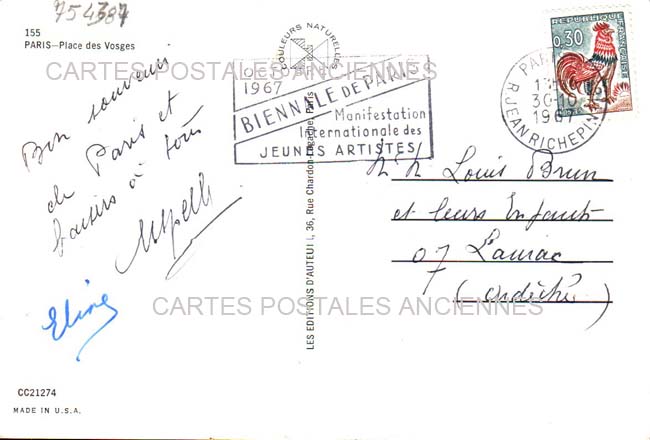 754387
155
PARIS—Place des Vosges
COULEURS NATURELLES
CARTES POSTALES ANCIENNES
OCT
1967
BIENNALE DE PARIS
Manifestation
Internationale des
JEUNES ARTISTES
REPUBLIQUE FRANÇAISE
0,30
PARIS
30-10
1967
R. JEAN RICHEPIN
Bon souvenir
de Paris et
baisers à tous
Eline
LES EDITIONS D'AUTEUIL, 36, Rue Chardon-Lagache, Paris
Louis Brun
et leurs Enfants
07 Lauriac
(ardèche)
CARTES POSTALES ANCIENNES
CC21274
MADE IN U.S.A.